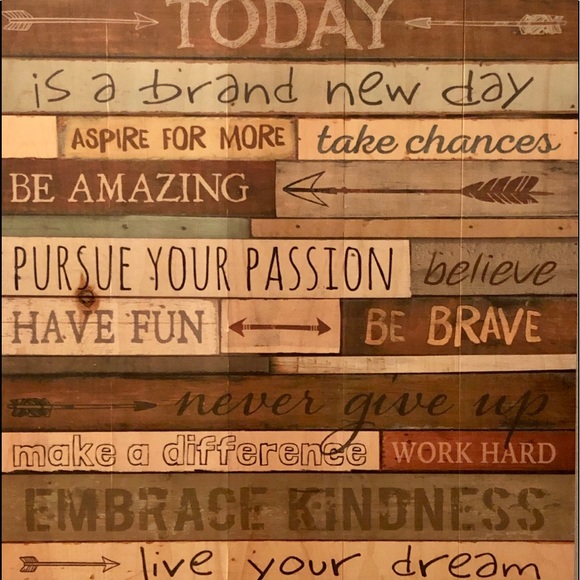 TODAY
is a brand new day
ASPIRE FOR MORE take chances
BE AMAZING
PURSUE YOUR PASSION believe
HAVE FUN BE BRAVE
never give up
make a difference WORK HARD
EMBRACE KINDNESS
live your dream